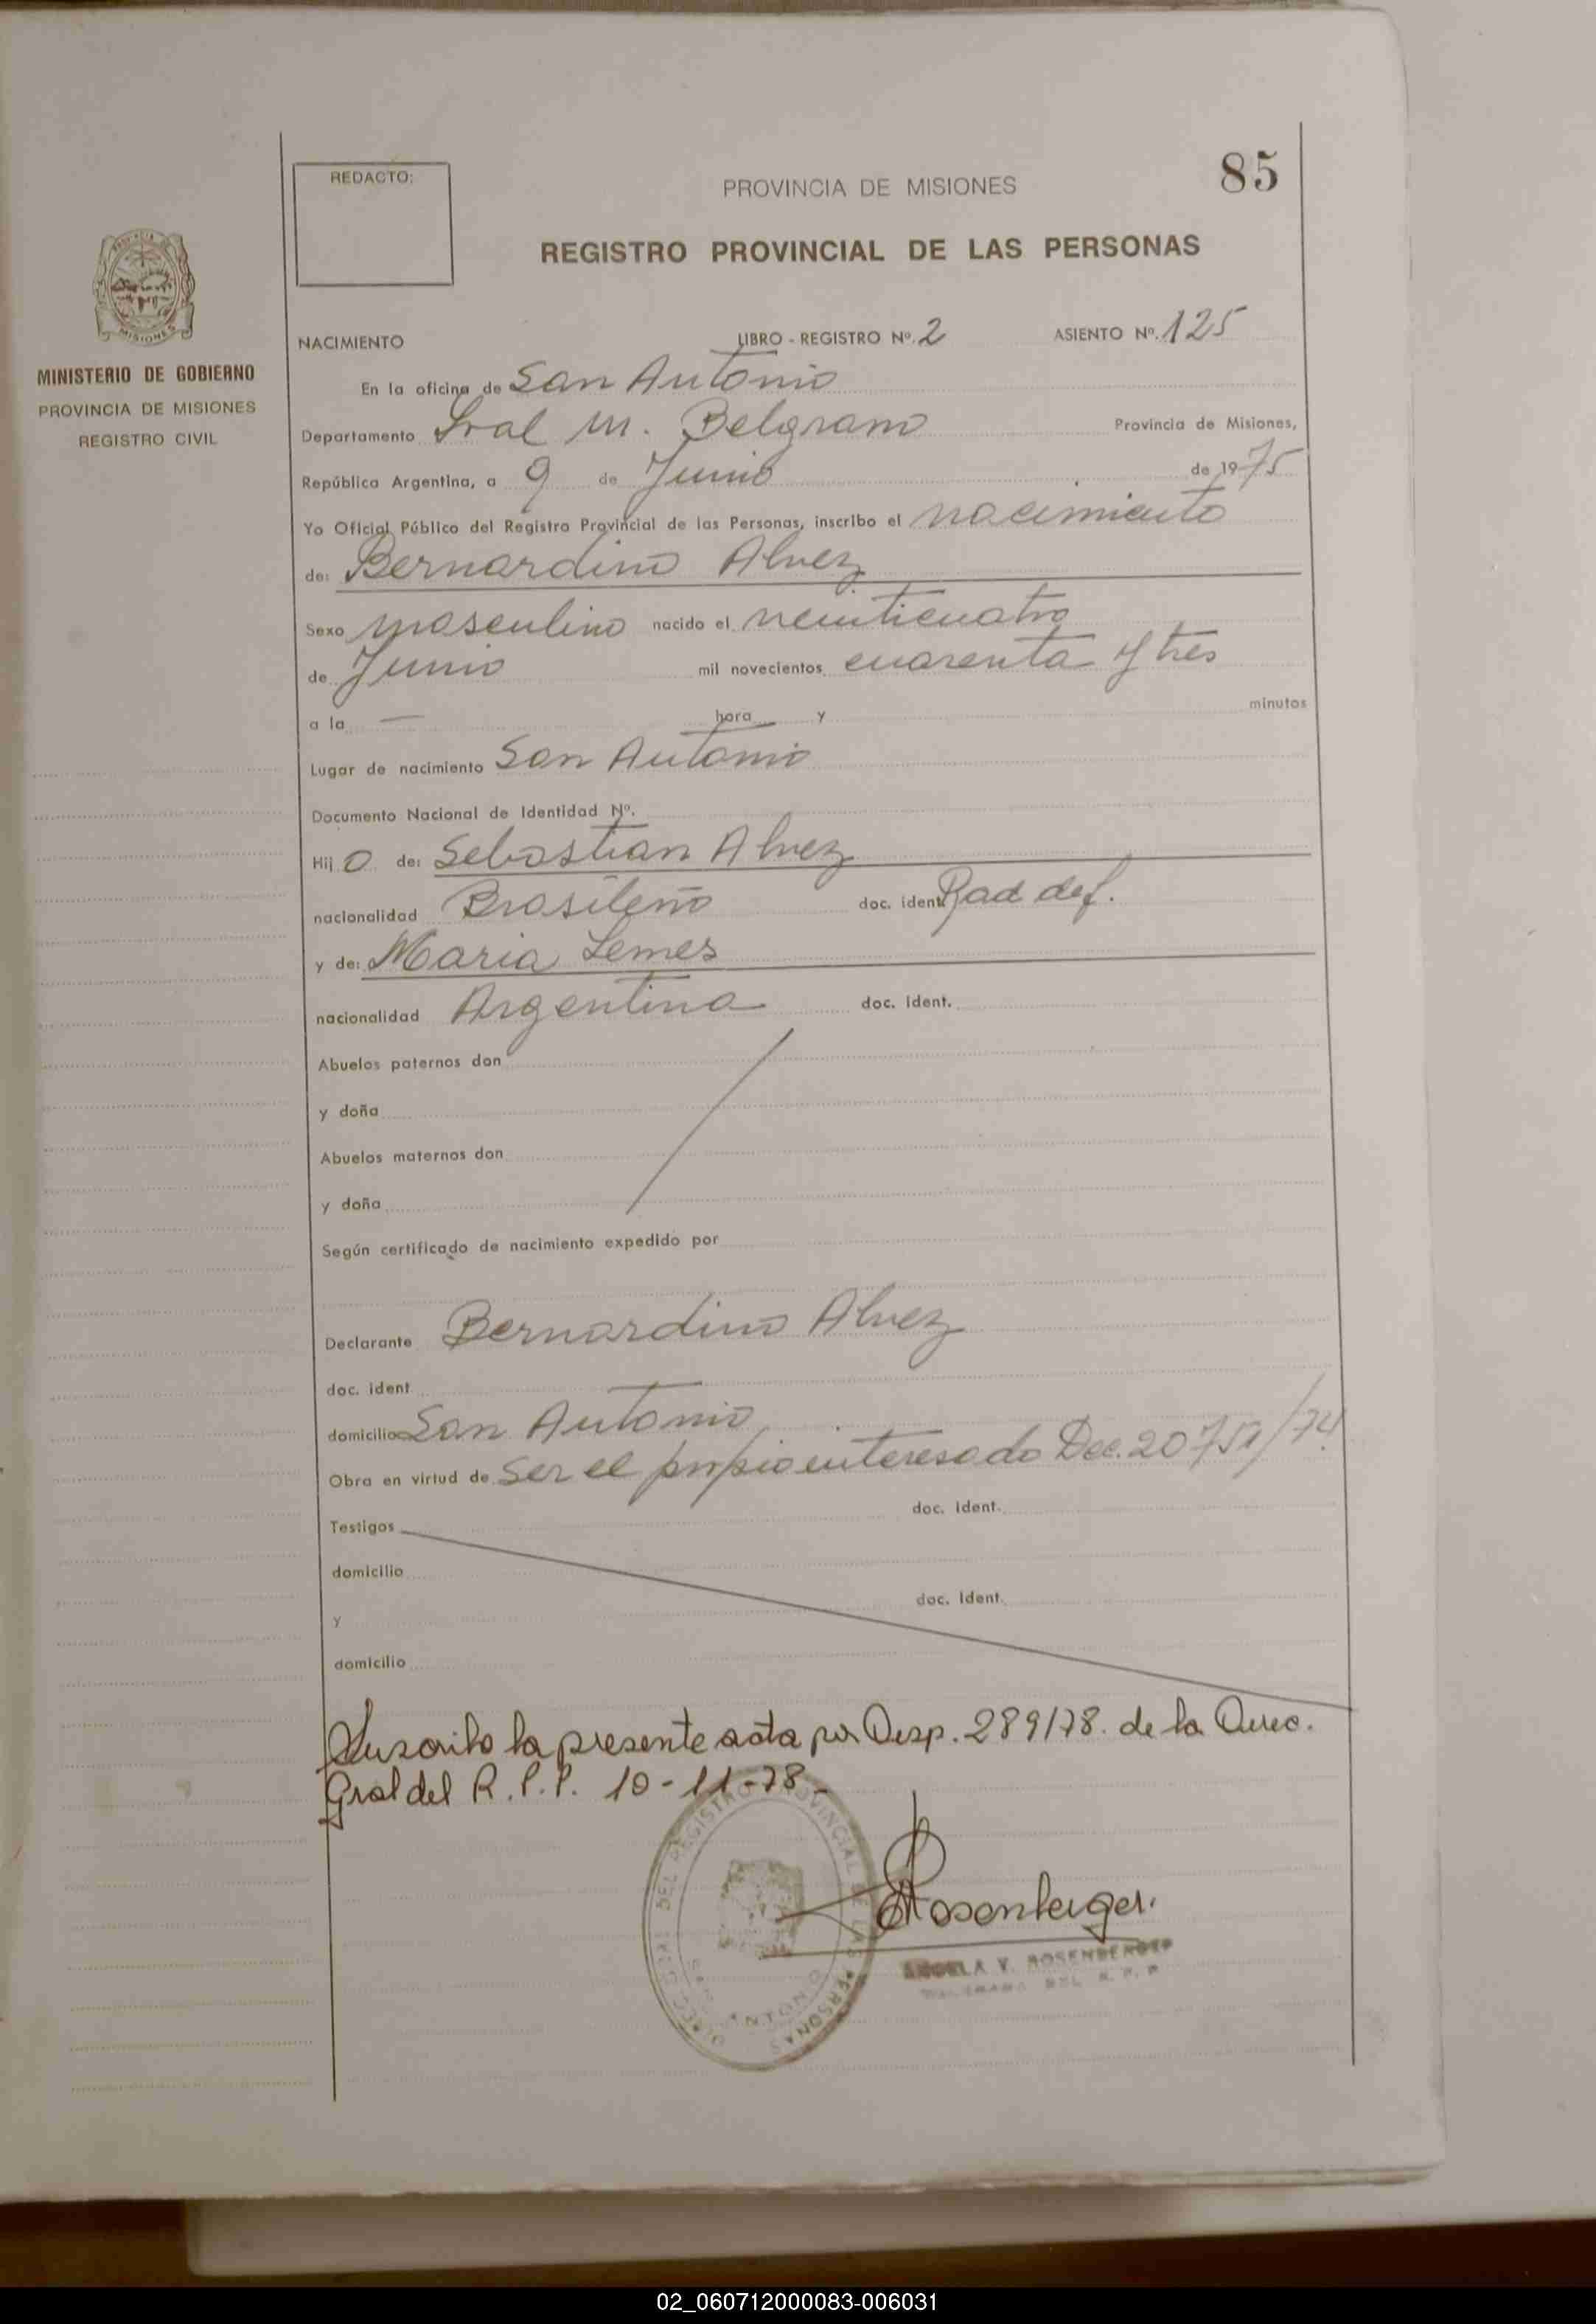 85
REDACTO:
PROVINCIA DE MISIONES
REGISTRO PROVINCIAL DE LAS PERSONAS
MISIONES
MINISTERIO DE GOBIERNO
PROVINCIA DE MISIONES
REGISTRO CIVIL
NACIMIENTO LIBRO - REGISTRO Nº. 2 ASIENTO Nº. 125
En la oficina de San Antonio
Departamento Gral M. Belgrano Provincia de Misiones,
República Argentina, a 9 de Junio de 1975
Yo Oficial Público del Registro Provincial de las Personas, inscribo el nacimiento
de: Bernardino Alvez
Sexo masculino nacido el veinticuatro
de Junio mil novecientos cuarenta y tres
a la — hora y minutos
Lugar de nacimiento San Antonio
Documento Nacional de Identidad Nº.
Hij o de: Sebastian Alvez
nacionalidad Brasileño doc. ident. Rad def.
y de: Maria Lemes
nacionalidad Argentina doc. ident.
Abuelos paternos don
y doña
Abuelos maternos don
y doña
Según certificado de nacimiento expedido por
Declarante Bernardino Alvez
doc. ident
domicilio San Antonio
Obra en virtud de ser el propio interesado Dec. 20751/74
Testigos doc. ident.
domicilio
y doc. ident.
domicilio
Suscribo la presente acta por Disp. 289/78. de la Direc.
Gral del R.P.P. 10-11-78-
DEL REGISTRO PROVINCIAL DE LAS PERSONAS
SAN ANTONIO
Rosenberger.
ANGELA Y. ROSENBERGER
DEL R.P.P
02_060712000083-006031